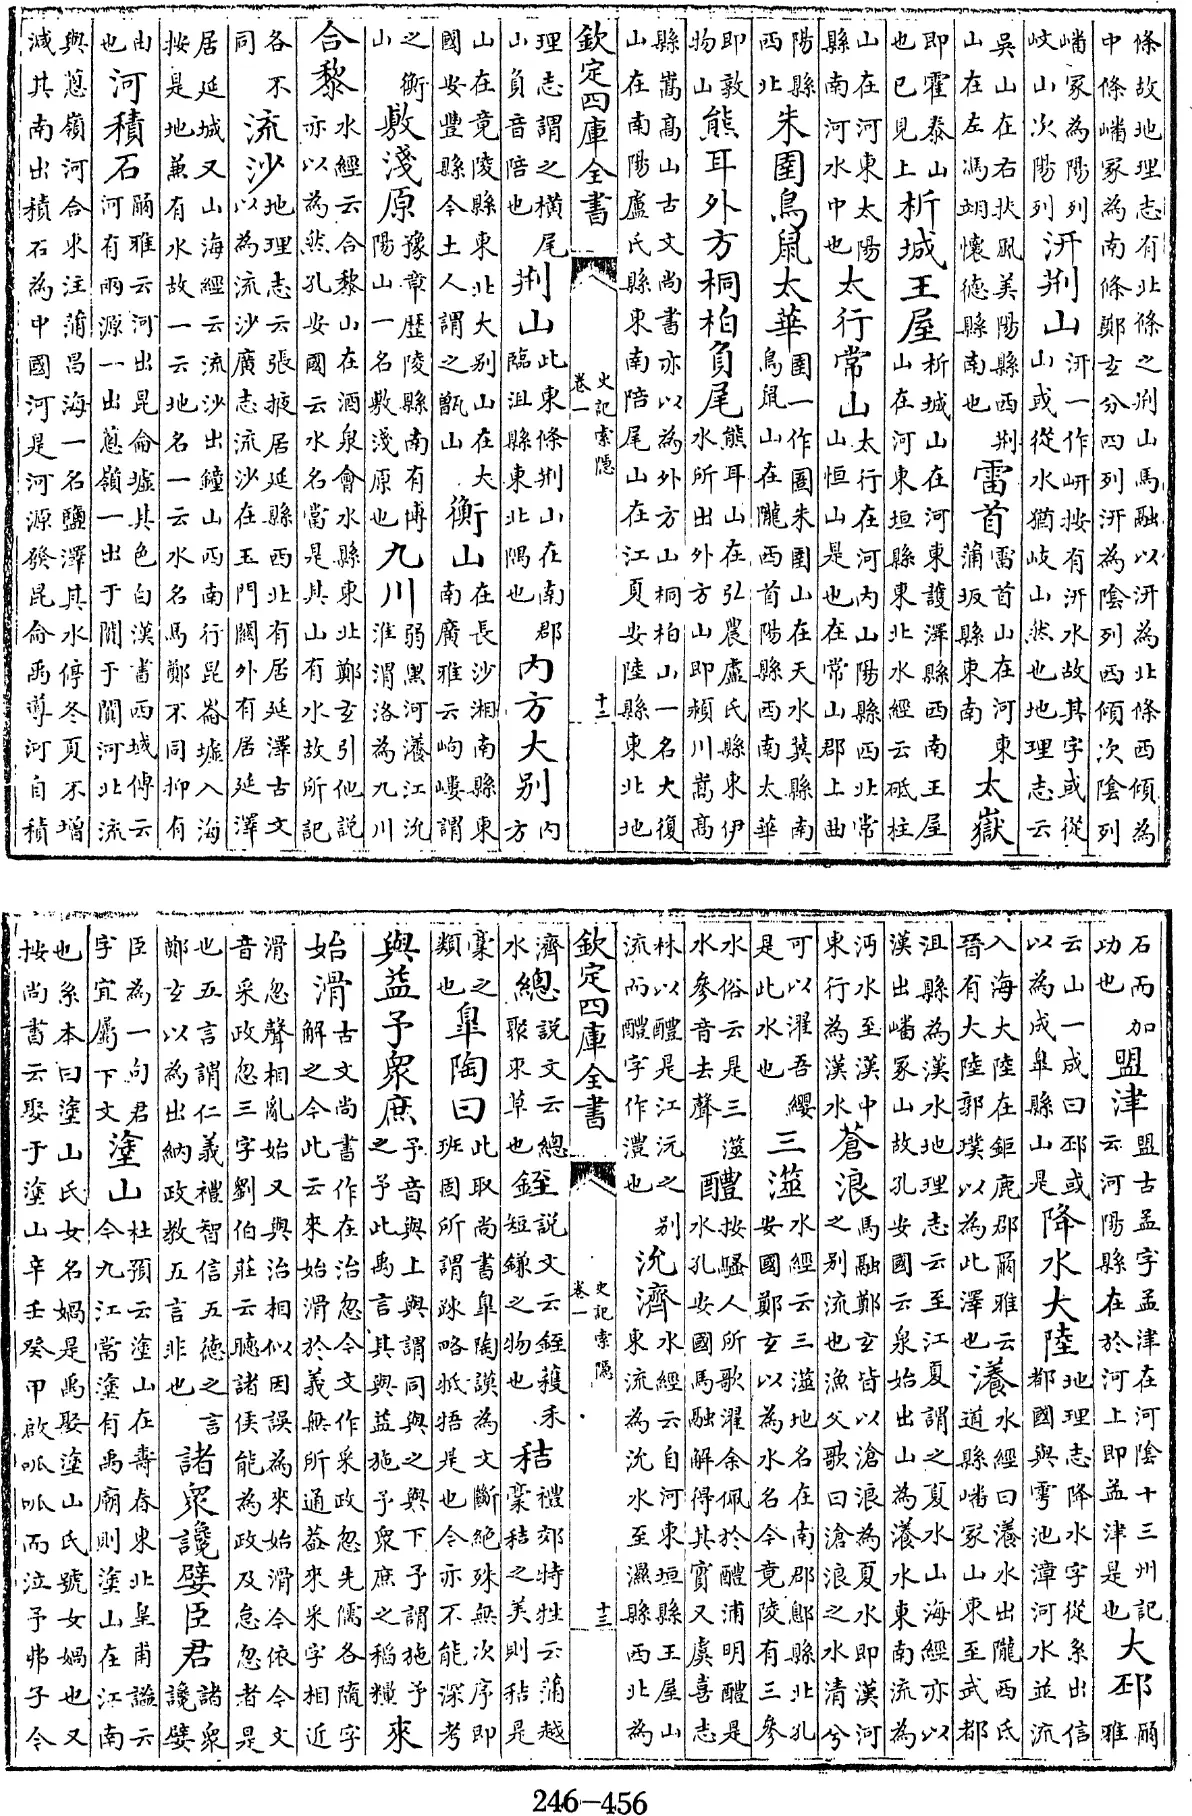 條故地理志有北條之荆山馬融以汧為北條西傾為中條嶓冢為南條鄭玄分四列汧為陰列西傾次陰列
嶓冢為陽列岐山次陽列汧荆山汧一作岍按有汧水故其字或從山或從水猶岐山然也地理志云
吳山在右扶風美陽縣西荆山在左馮翊懷德縣南也雷首雷首山在河東蒲坂縣東南太嶽
即霍泰山也已見上析城王屋析城山在河東濩澤縣西南王屋山在河東垣縣東北水經云砥柱
山在河東太陽縣南河水中也太行常山太行在河内山陽縣西北常山恒山是也在常山郡上曲
陽縣西北朱圉鳥鼠太華圉一作圄朱圉山在天水冀縣南鳥鼠山在隴西首陽縣西南太華
即敦物山熊耳外方桐柏負尾熊耳山在弘農盧氏縣東伊水所出外方山即潁川嵩高
縣嵩高山古文尚書亦以為外方山桐柏山一名大復山在南陽盧氏縣東南陪尾山在江夏安陸縣東北地
欽定四庫全書 史記索隱 卷一 十二
理志謂之横尾山負音陪也荆山此東條荆山在南郡臨沮縣東北隅也内方大别内方
山在竟陵縣東北大别山在大國安豐縣今土人謂之甑山衡山在長沙湘南縣東南廣雅云岣嶁謂
之衡山敷淺原豫章歴陵縣南有博陽山一名敷淺原也九川弱黑河瀁江沇淮渭洛為九川
合黎水經云合黎山在酒泉會水縣東北鄭玄引他説亦以為然孔安國云水名當是其山有水故所記
各不同流沙地理志云張掖居延縣西北有居延澤古文以為流沙廣志流沙在玉門闗外有居延澤
居延城又山海經云流沙出鐘山西南行昆崙墟入海按是地兼有水故一云地名一云水名馬鄭不同抑有
由也河積石爾雅云河出昆侖墟其色白漢書西域傳云河有兩源一出葱嶺一出于闐于闐河北流
與葱嶺河合東注蒲昌海一名鹽澤其水停冬夏不増減其南出積石為中國河是河源發昆侖禹導河自積
石而加功也盟津盟古孟字孟津在河陰十三州記云河陽縣在於河上即孟津是也大邳爾雅
云山一成曰邳或以為成臯縣山是降水大陸地理志降水字從糸出信都國與虖池漳河水並流
入海大陸在鉅鹿郡爾雅云晉有大陸郭璞以為此澤也瀁水經曰瀁水出隴西氐道縣嶓冢山東至武都
沮縣為漢水地理志云至江夏謂之夏水山海經亦以漢出嶓冢山故孔安國云泉始出山為瀁水東南流為
沔水至漢中東行為漢水蒼浪馬融鄭玄皆以滄浪為夏水即漢河之别流也漁父歌曰滄浪之水清兮
可以濯吾纓是此水也三澨水經云三澨地名在南郡邔縣北孔安國鄭玄以為水名今竟陵有三參
水俗云是三澨水參音去聲醴按騷人所歌濯余佩於醴浦明醴是水孔安國馬融解得其實又虞喜志
林以醴是江沅之别流而醴字作澧也沇濟水經云自河東垣縣王屋山東流為沇水至濕縣西北為
欽定四庫全書 史記索隱 卷一 十三
濟水總説文云總聚束草也銍説文云銍穫禾短鎌之物也秸禮郊特牲云蒲越槀秸之美則秸是
槀之類也臯陶曰此取尚書臯陶謨為文斷絶殊無次序即班固所謂疎略抵捂是也今亦不能深考
與益予衆庶予音與上與謂同與之與下予謂施予之予此禹言其與益施予衆庶之稻糧來
始滑古文尚書作在治忽今文作采政忽先儒各隨字解之今此云來始滑於義無所通葢來采字相近
滑忽聲相亂始又與治相似因誤為來始滑今依今文音采政忽三字劉伯莊云聽諸侯能為政及怠忽者是
也五言謂仁義禮智信五德之言鄭玄以為出納政教五言非也諸衆讒嬖臣君諸衆讒嬖
臣為一句君字宜屬下文塗山杜預云塗山在壽春東北皇甫謐云今九江當塗有禹廟則塗山在江南
也系本曰塗山氏女名媧是禹娶塗山氏號女媧也又按尚書云娶于塗山辛壬癸甲啟呱呱而泣予弗子今
246-456